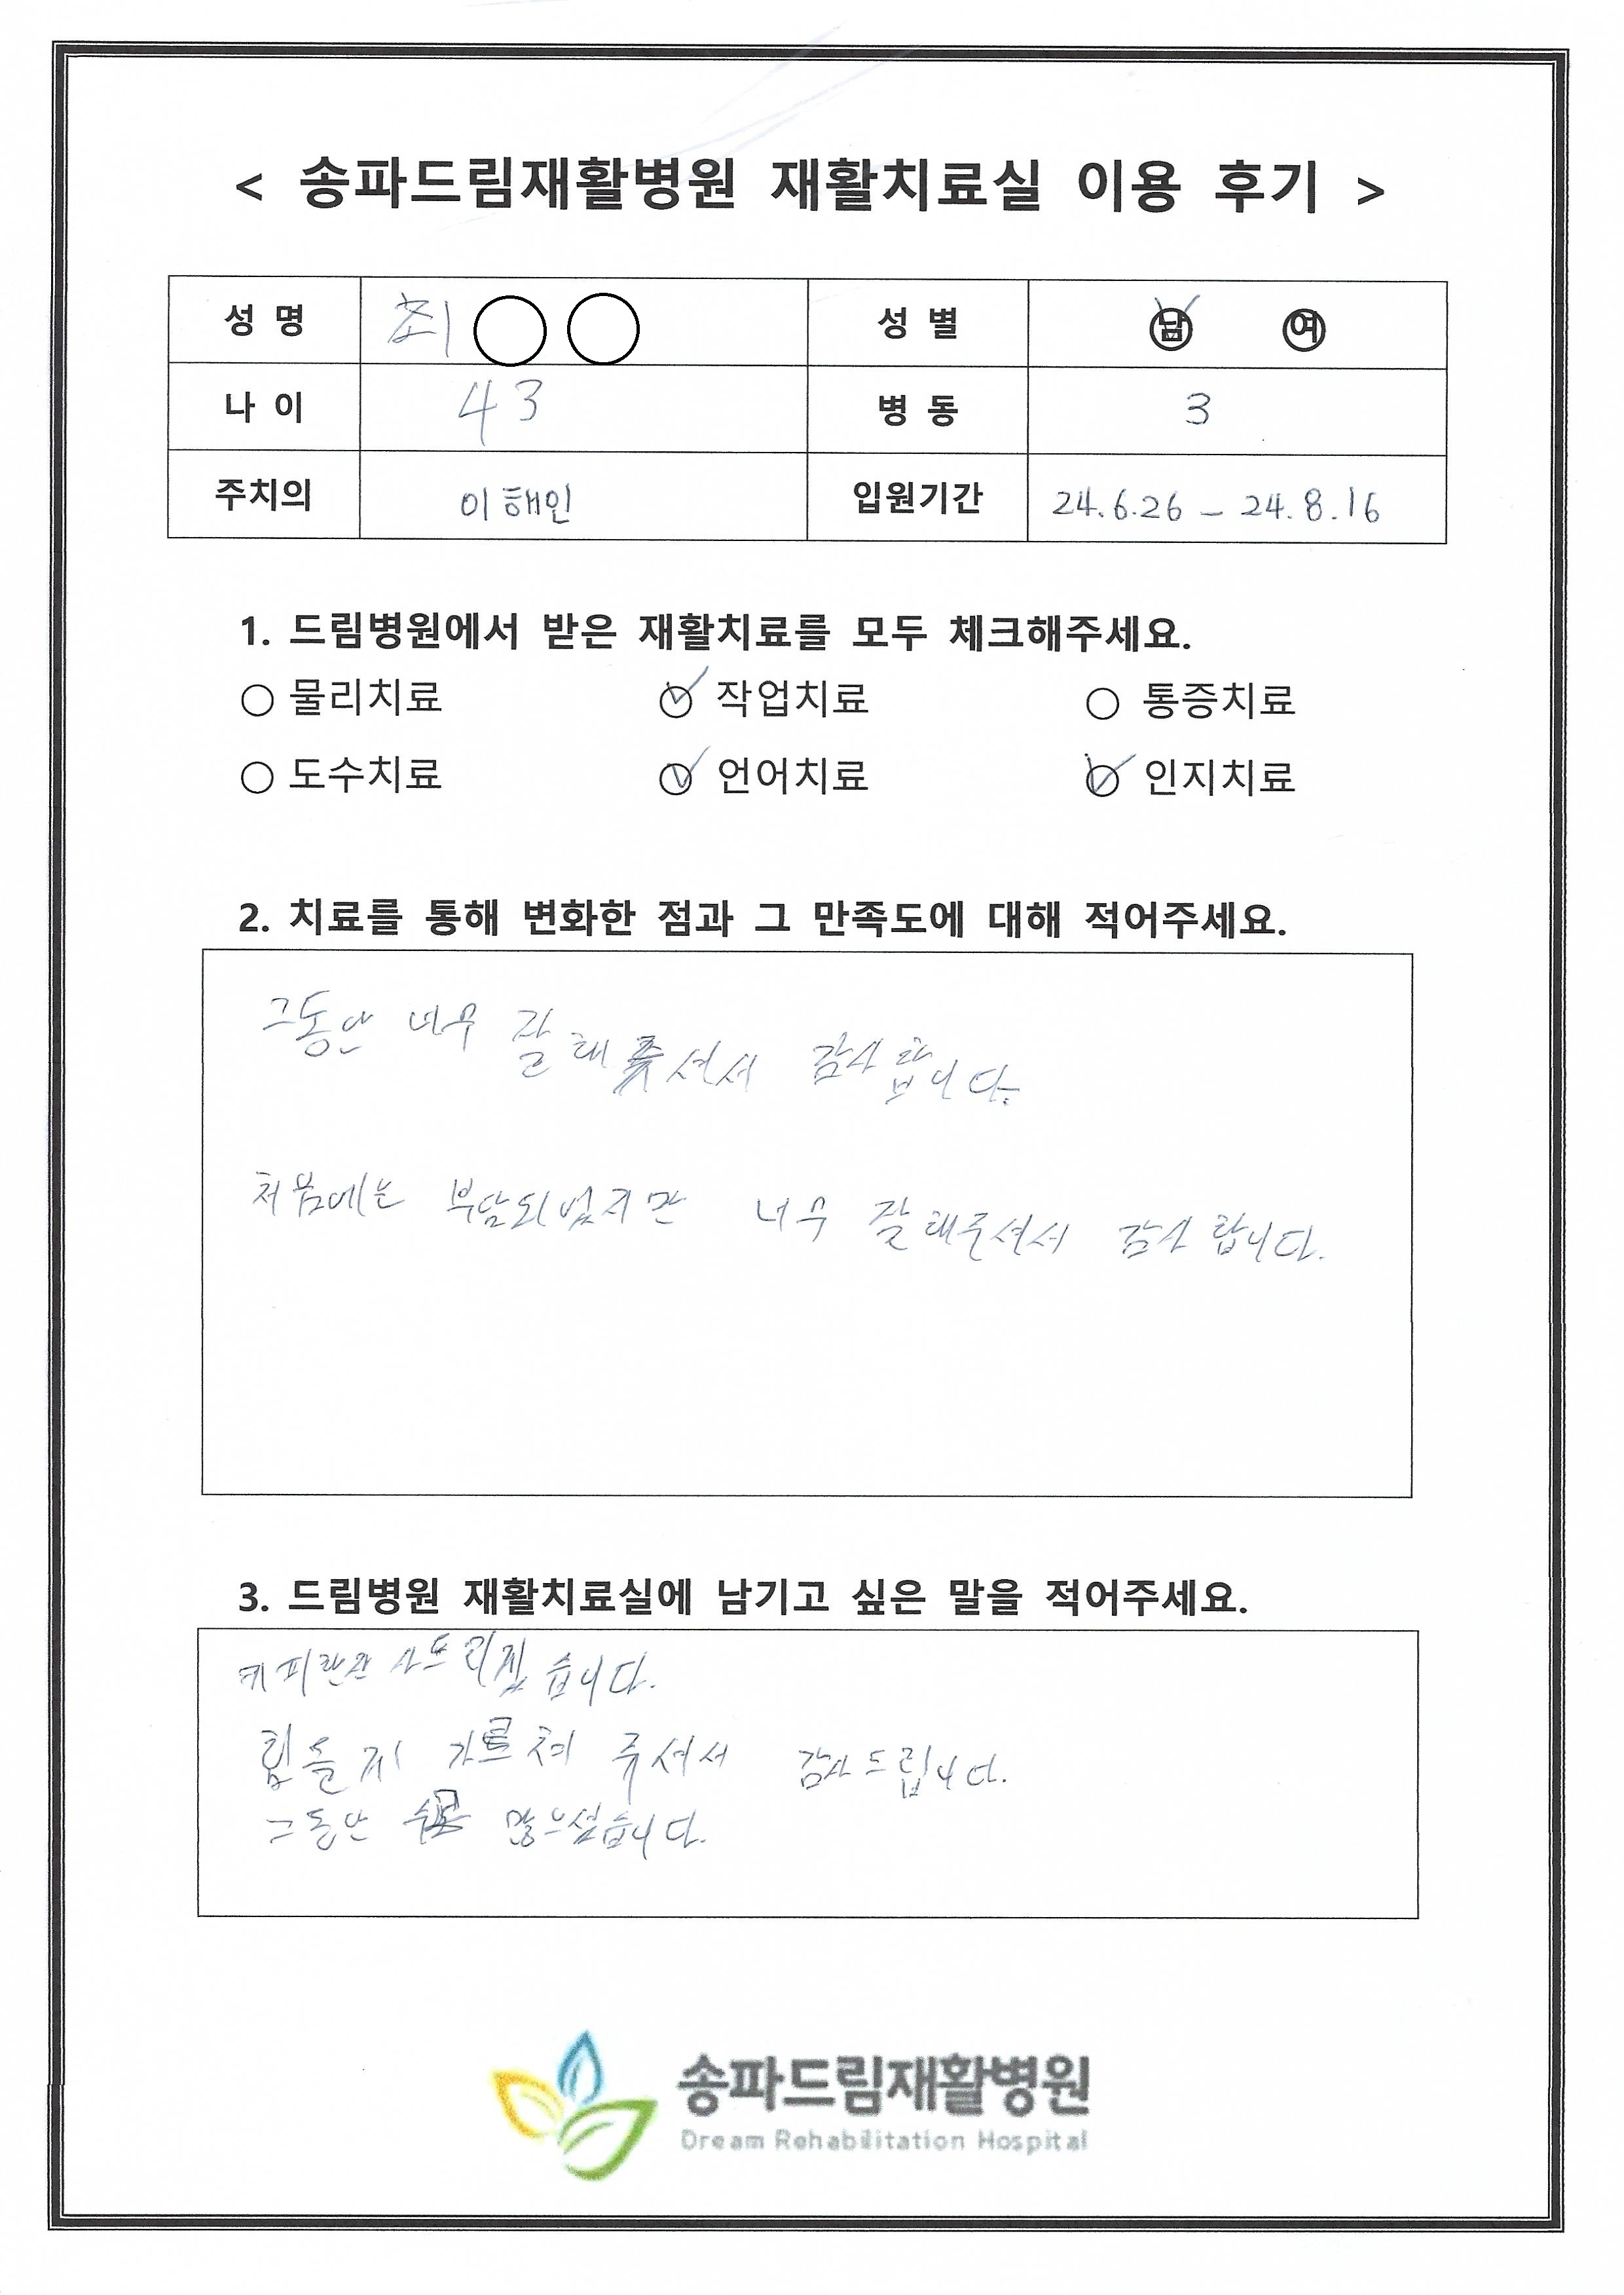 < 송파드림재활병원 재활치료실 이용 후기 >
성 명 최○○ 성 별 남 여
나 이 43 병 동 3
주치의 이해인 입원기간 24.6.26 - 24.8.16
1. 드림병원에서 받은 재활치료를 모두 체크해주세요.
물리치료 작업치료 통증치료
도수치료 언어치료 인지치료
2. 치료를 통해 변화한 점과 그 만족도에 대해 적어주세요.
그동안 너무 잘 해주셔서 감사합니다.
처음에는 부담되었지만 너무 잘해주셔서 감사합니다.
3. 드림병원 재활치료실에 남기고 싶은 말을 적어주세요.
습니다.
힘들게 가르쳐 주셔서 감사드립니다.
그동안 많으셨습니다.
송파드림재활병원
Dream Rehabilitation Hospital